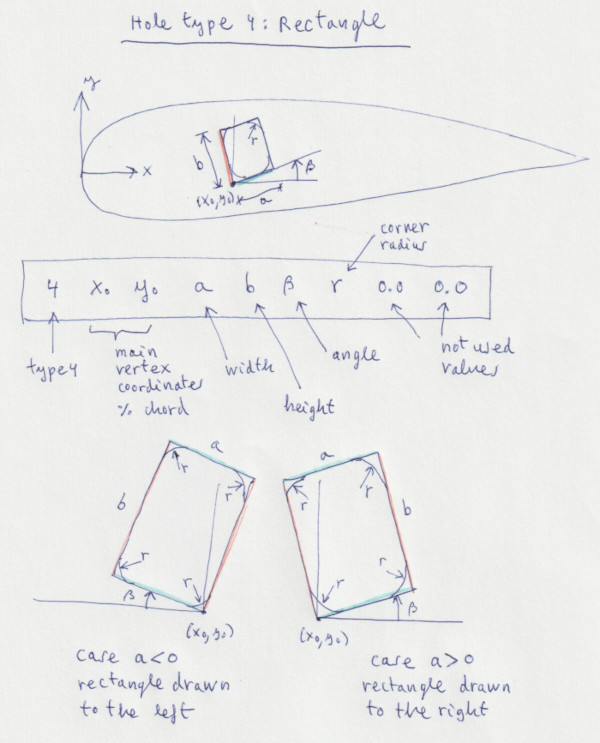 Hole type 4: Rectangle
y
x
b
r
β
(x₀,y₀)
a
corner
radius
4 x₀ y₀ a b β r 0.0 0.0
type 4
main
vertex
coordinates
% chord
width
height
angle
not used
values
a
b
r
r
r
r
β
(x₀,y₀)
case a<0
rectangle drawn
to the left
a
b
r
r
r
r
β
(x₀,y₀)
case a>0
rectangle drawn
to the right